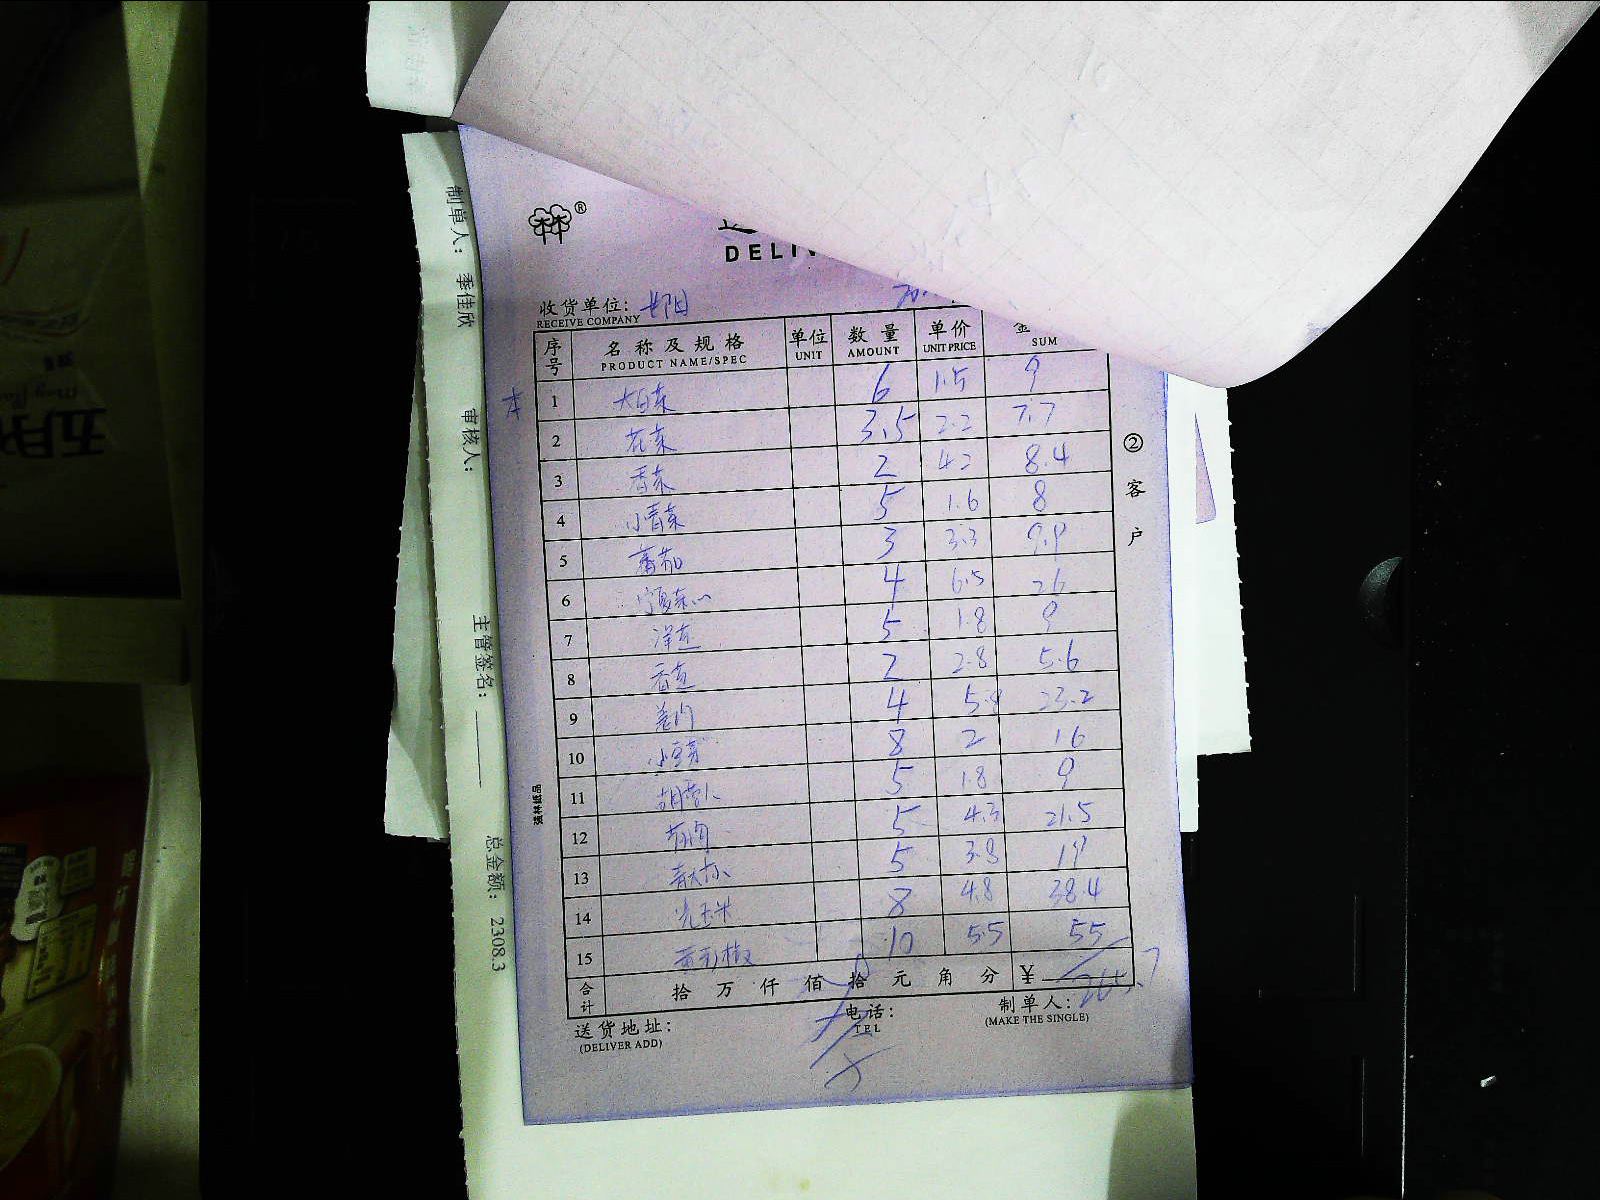 DELIV
收货单位:
RECEIVE COMPANY
序号 名称及规格 单位 数量 单价 金
PRODUCT NAME/SPEC UNIT AMOUNT UNIT PRICE SUM
本 1 大白菜 6 1.5 9
2 花菜 3.5 2.2 7.7
3 香菜 2 4.2 8.4
4 小青菜 5 1.6 8
5 番茄 3 3.3 9.9
6 宁夏菜心 4 6.5 26
7 洋葱 5 1.8 9
8 香葱 2 2.8 5.6
9 姜 4 5.8 23.2
10 小豆芽 8 2 16
11 胡萝卜 5 1.8 9
12 5 4.3 21.5
13 青大椒 5 3.8 19
14 玉米 8 4.8 38.4
15 黄彩椒 10 5.5 55
合计 拾 万 仟 佰 拾 元 角 分 ¥ 265.7
送货地址:
(DELIVER ADD)
电话:
TEL
制单人:
(MAKE THE SINGLE)
②客户
強林紙品
制单人: 季佳欣
审核人:
主管签名:
总金额: 2308.3